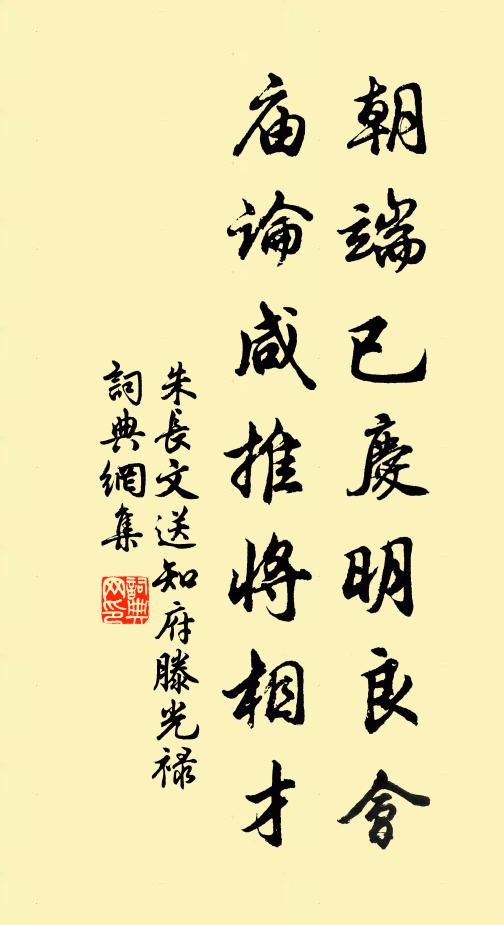 朝端已慶明良會
庙論咸推將相才
朱長文送知府滕光禄
詞典網集
詞典
网印